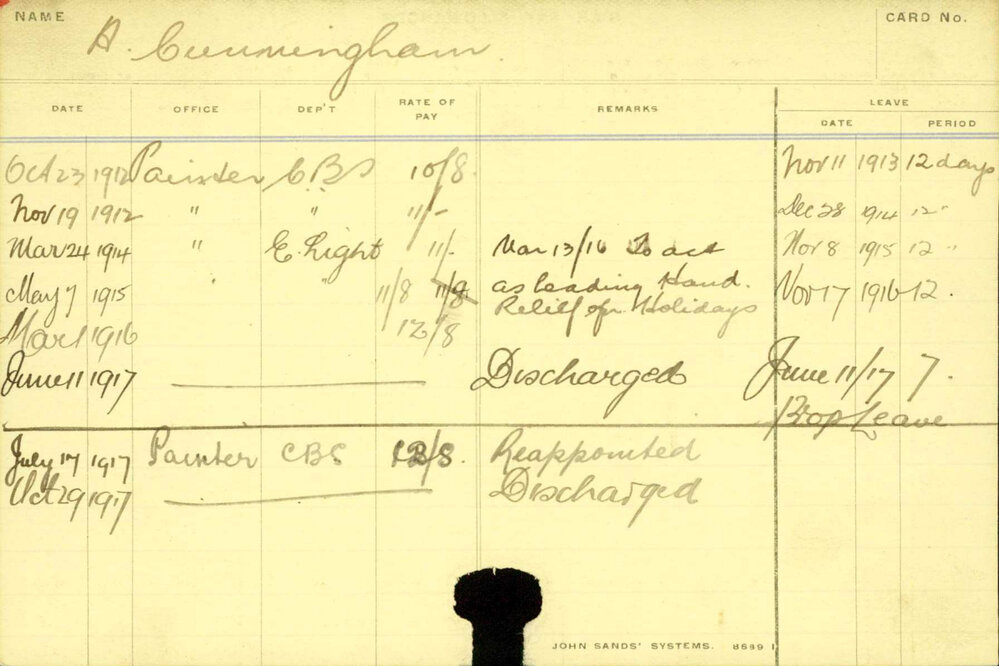 NAME
A. Cunningham
CARD No.
DATE OFFICE DEP'T RATE OF PAY REMARKS LEAVE
DATE PERIOD
Oct 23 1912 Painter CBS 10/8 Nov 11 1913 12 days
Nov 19 1912 " " 11/- Dec 28 1914 12 "
Mar 24 1914 " E. Light 11/- Mar 13/16 To act Nov 8 1915 12 "
May 7 1915 " " 11/8 11/8 as leading Hand. Nov 17 1916 12 "
Relief of Holidays
Mar 1 1916 12/8
June 11 1917 Discharged June 11/17 7.
Prop Leave
July 17 1917 Painter CBS 12/8. Reappointed
Oct 29 1917 Discharged
JOHN SANDS' SYSTEMS. 8689